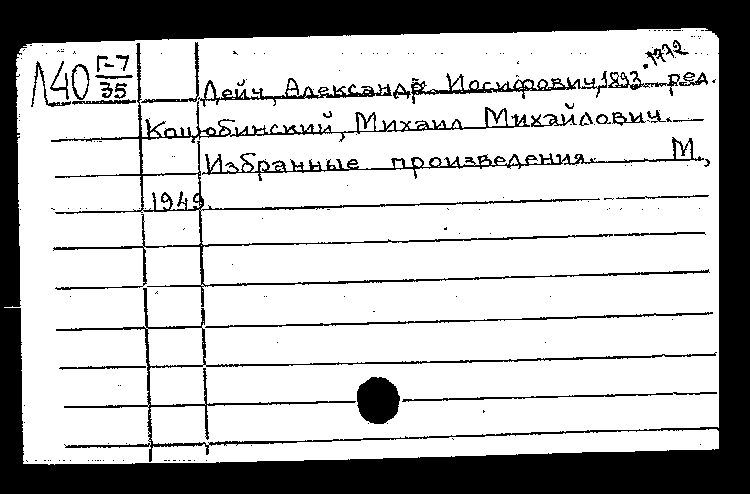 Л40 Г-7/35
Дейч, Александр Иосифович, 1893-1972 ред.
Коцюбинский, Михаил Михайлович.
Избранные произведения. М.,
1949.